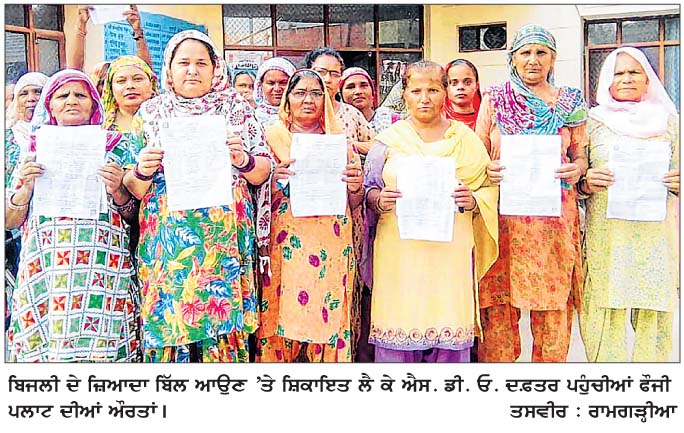 ਬਿਜਲੀ ਦੇ ਜ਼ਿਆਦਾ ਬਿੱਲ ਆਉਣ 'ਤੇ ਸ਼ਿਕਾਇਤ ਲੈ ਕੇ ਐਸ. ਡੀ. ਓ. ਦਫ਼ਤਰ ਪਹੁੰਚੀਆਂ ਫੌਜੀ
ਪਲਾਟ ਦੀਆਂ ਔਰਤਾਂ। ਤਸਵੀਰ : ਰਾਮਗੜ੍ਹੀਆ